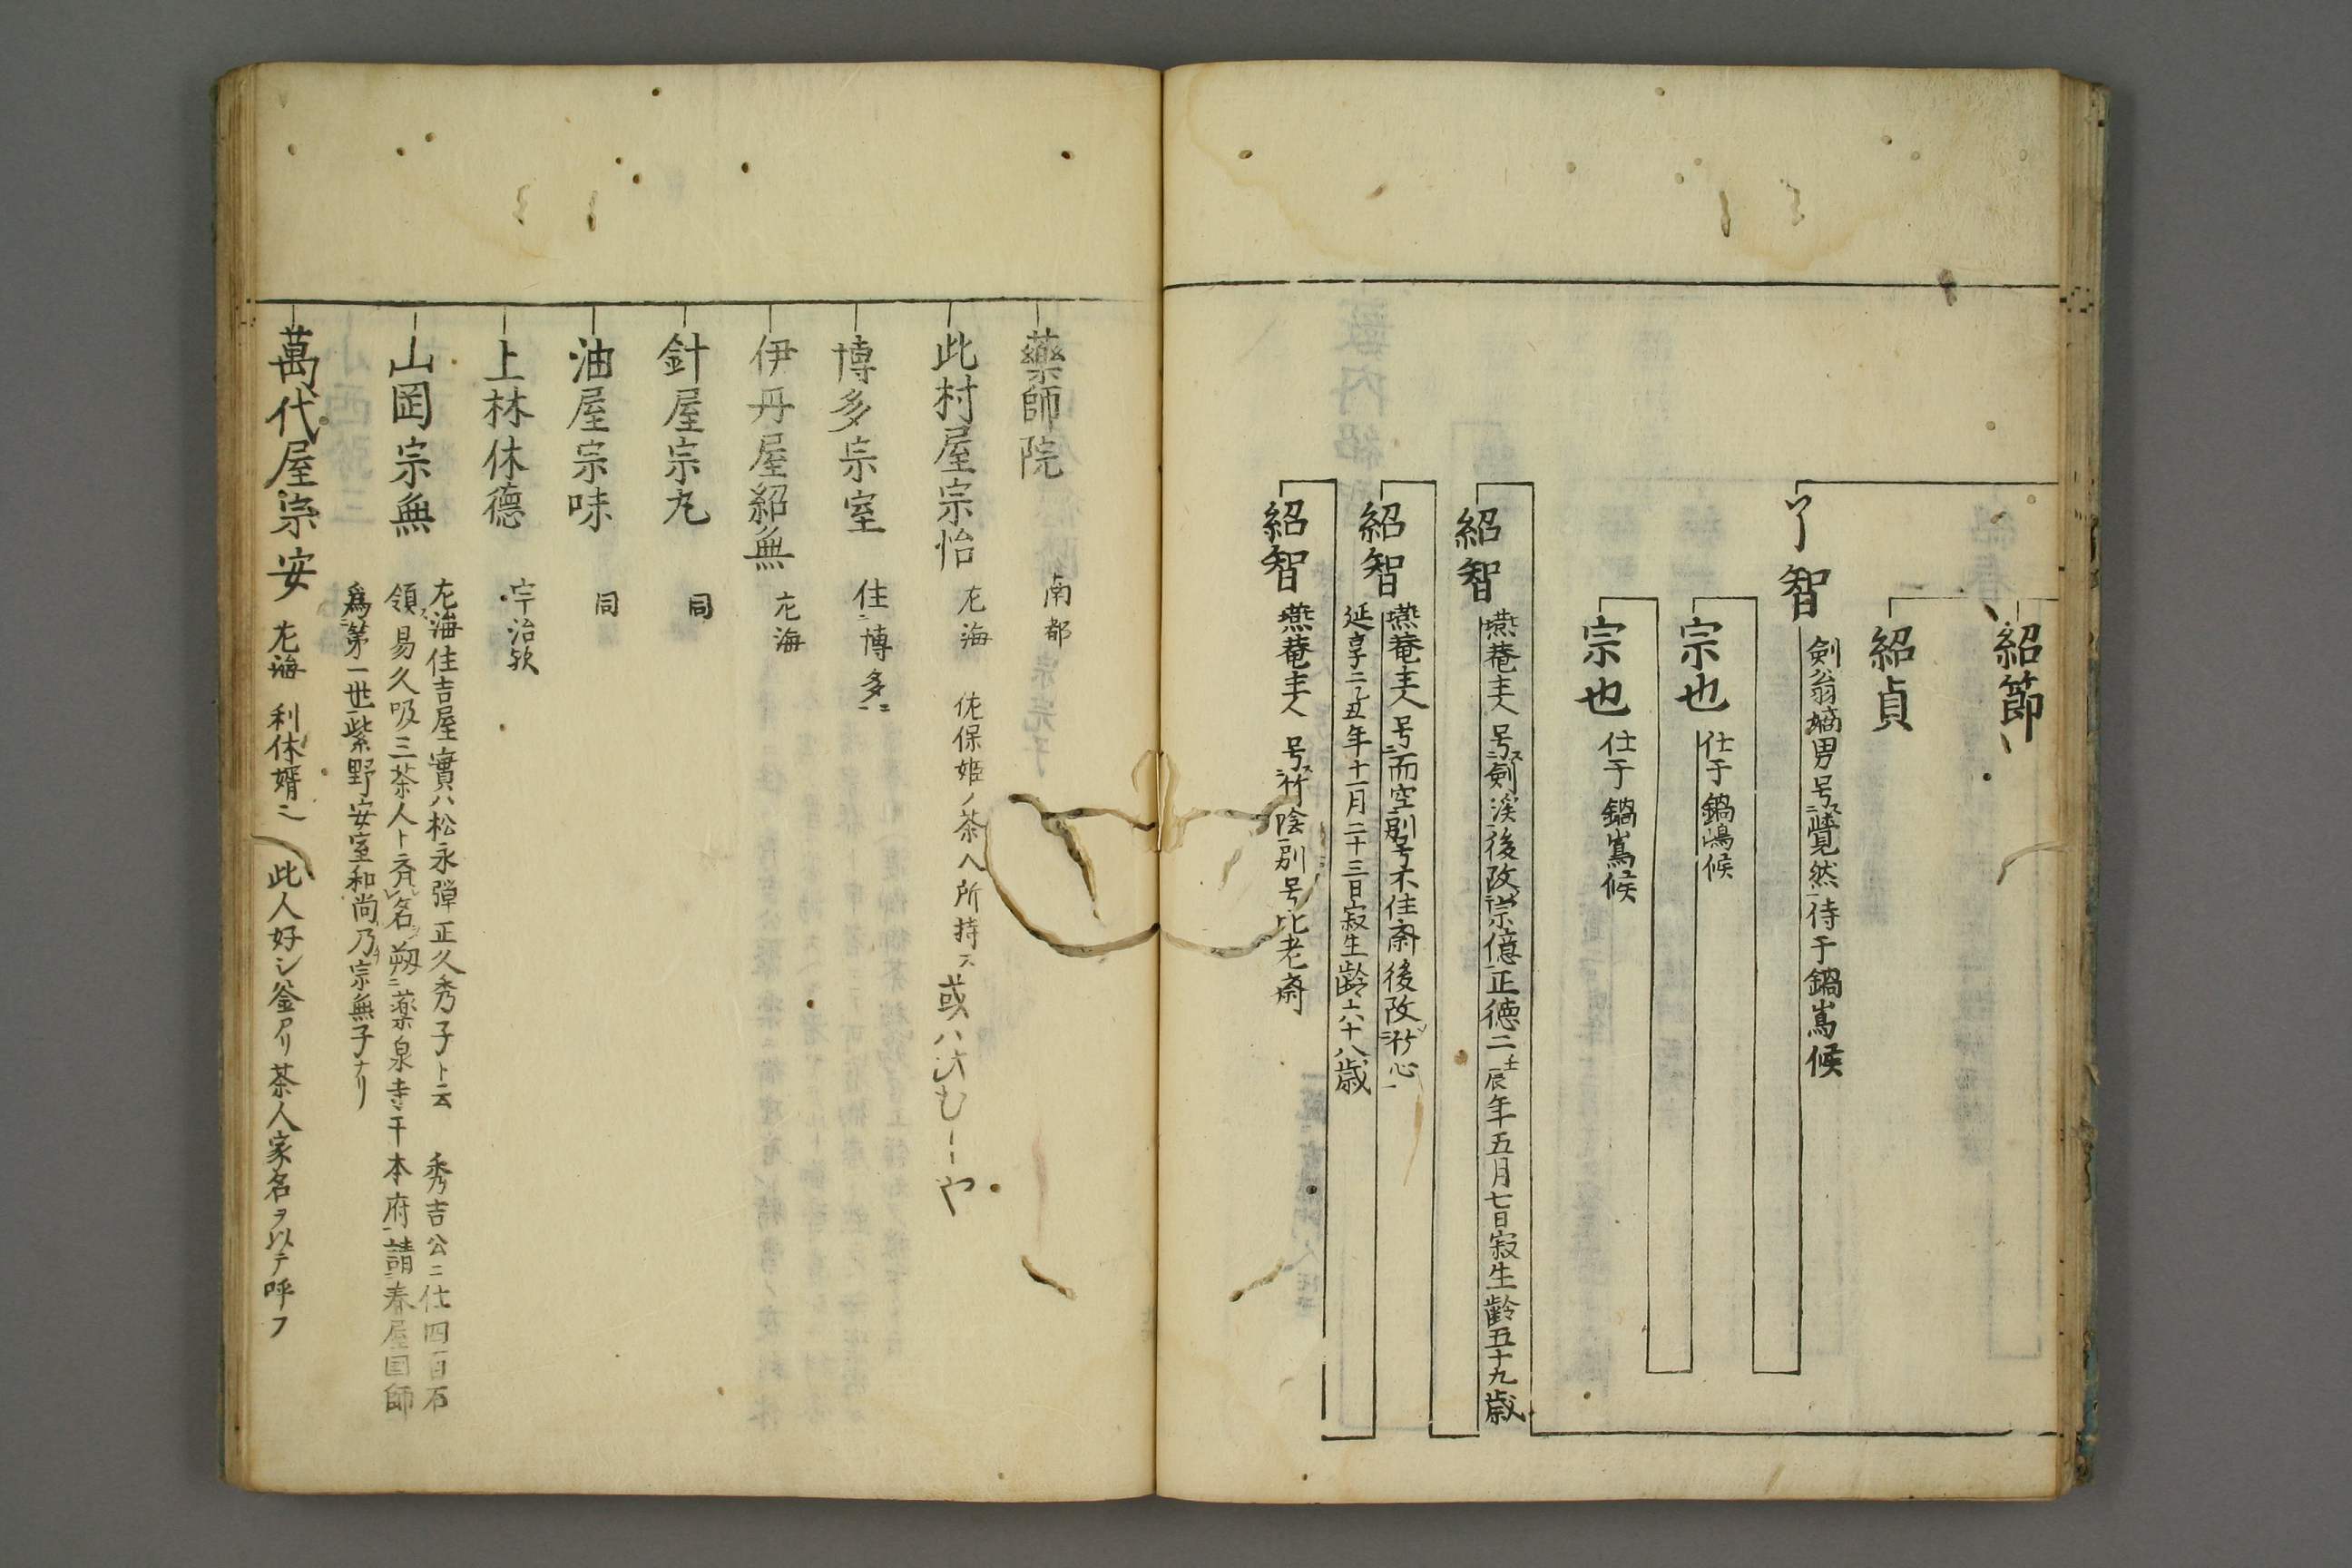 紹節
紹貞
丫智 剣翁嫡男号ス覺然ニ待于鍋嶌候
宗也 仕于鍋嶋候
宗也 仕于鍋嶌候
紹智 㷼菴主人 号ス剣渓ニ後改宗億ニ正徳二壬辰年五月七日寂生齢五十九歳
紹智 㷼菴主人 号ニ而空別号不住斎後改竹心
延享二乙丑年十一月二十三日寂生齢六十八歳
紹智 㷼菴主人 号竹陰別号比老斎
藥師院 南都
此村屋宗怡 左海 佐保姫ノ茶入所持ス 或ハ
博多宗室 住ニ博多ニ
伊丹屋紹無 左海
針屋宗九 同
油屋宗味 同
上林休德 宇治欤
山岡宗無 左海住吉屋實ハ松永弾正久秀子ト云 秀吉公ニ仕四百石
領ス易久吸三茶人ト斉名 剏ニ薬泉寺于本府請春屋国師
爲第一世紫野安室和尚乃宗無子ナリ
萬代屋宗安 左海 利休婿ニ 此人好シ釜アリ茶人家名ヲ以テ呼フ